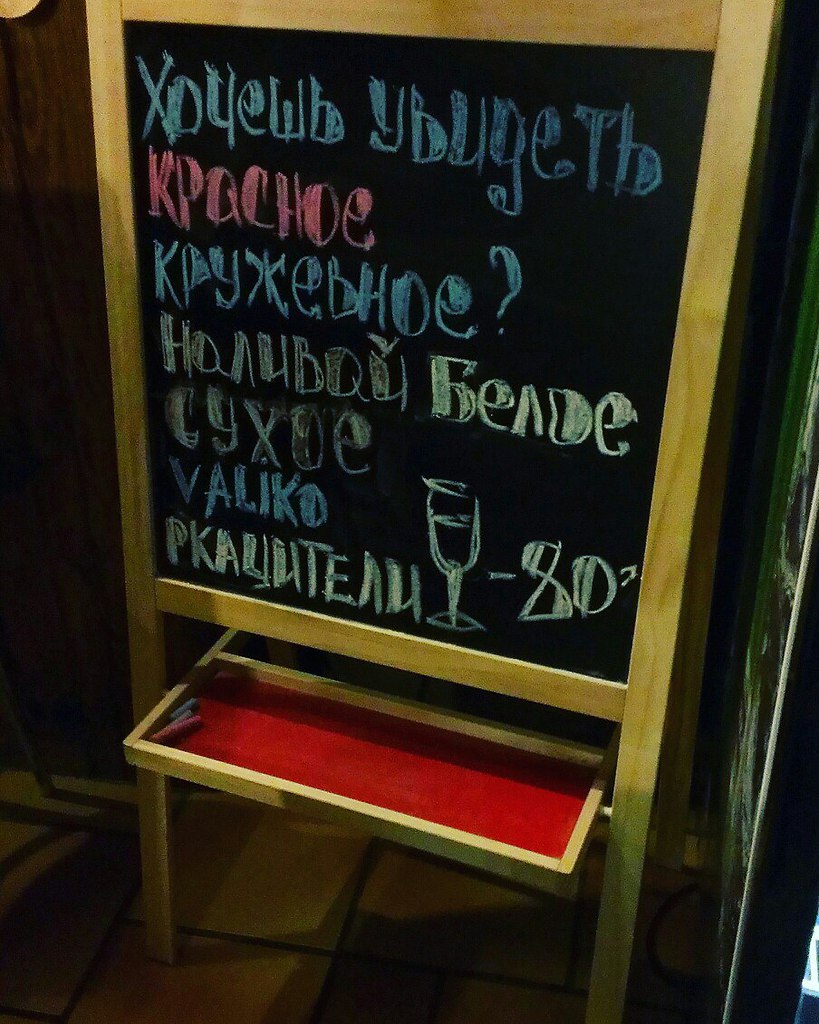 Хочешь увидеть
красное
кружевное?
Наливай Белое
сухое
VALIKO
РКАЦИТЕЛИ - 80